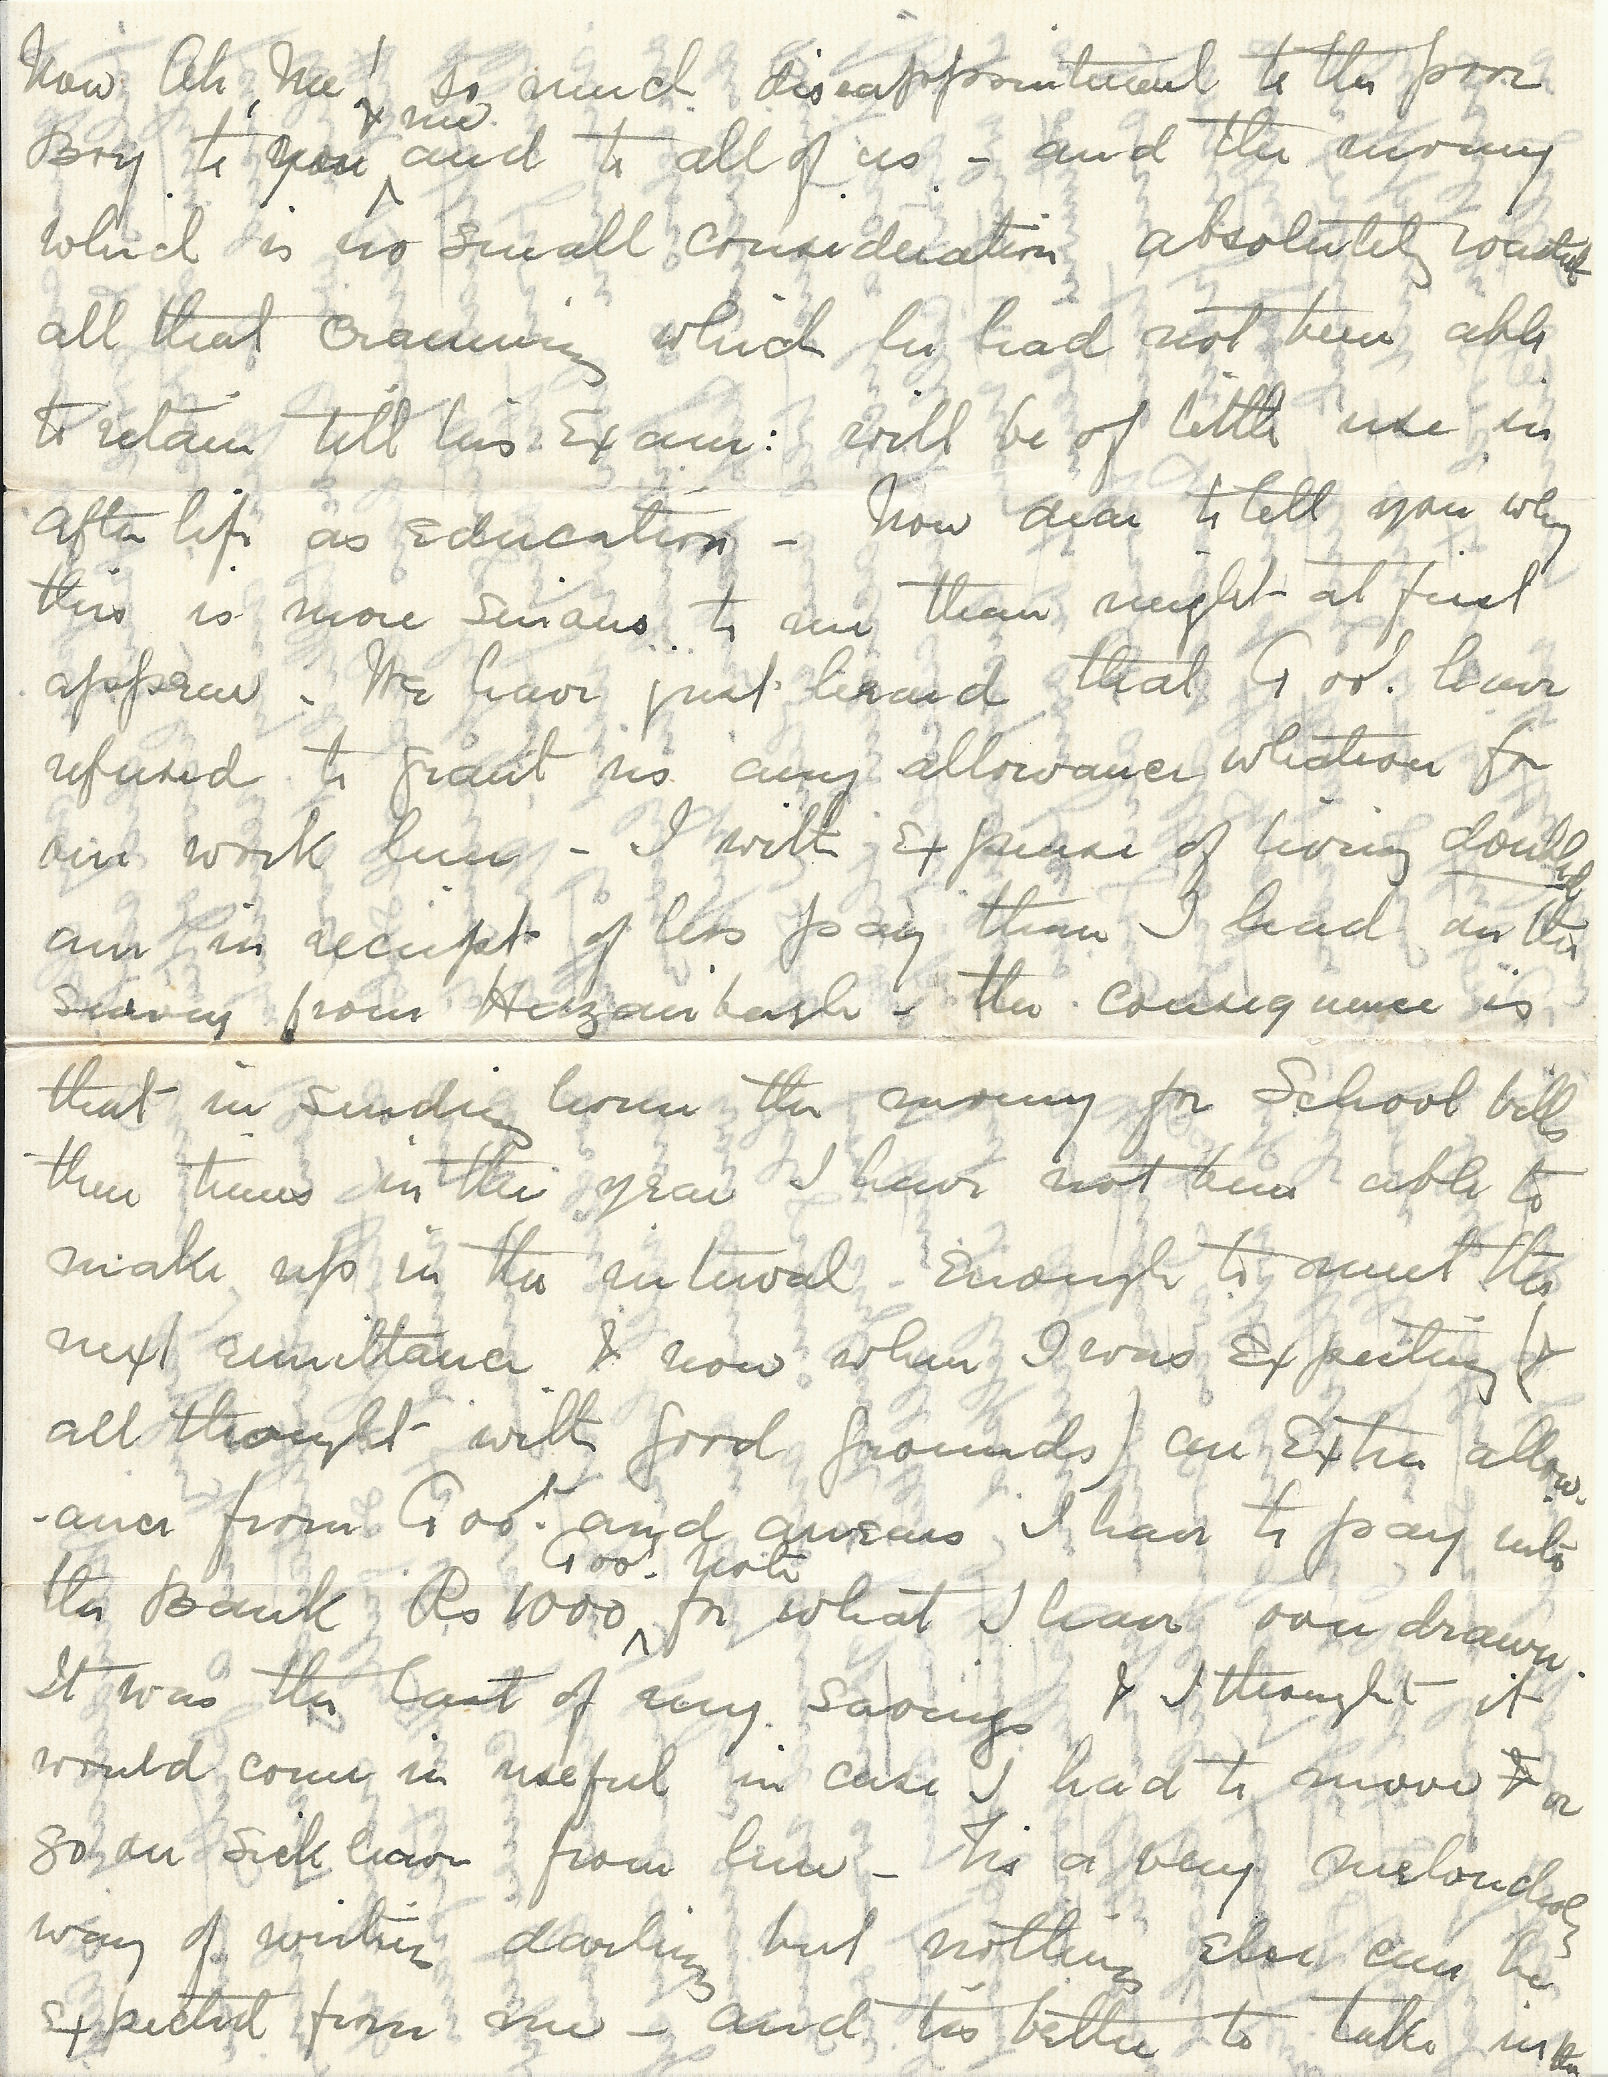 Now Ah, Me! so much disappointment to the poor
& me
Boy to you ^ and to all of us - and the money
which is no small consideration absolutely wasted
all that cramming which he had not been able
to retain till his Exam: will be of little use in
after life as Education - Now dear to tell you why
this is more serious to me than might at first
appear - We have just heard that Govt. have
refused to grant us any allowance whatever for
our work here - I with Expense of living doubled
am in receipt of less pay than I had on the
Survey from Hazaribagh - the consequence is
that in sending home the money for School bills
three times in the year I have not been able to
make up in the interval Enough to meet the
next remittance & now when I was Expecting (&
all thought with good grounds) an Extra allow-
-ance from Govt. and arrears I have to pay into
Govt. Note
the Bank Rs 1000 ^ for what I have over drawn.
It was the last of my savings & I thought it
would come in useful in case I had to move or
go on sick leave from here - Tis a very meloncholy
way of writing darling but nothing Else can be
Expected from me - and tis better to take in the